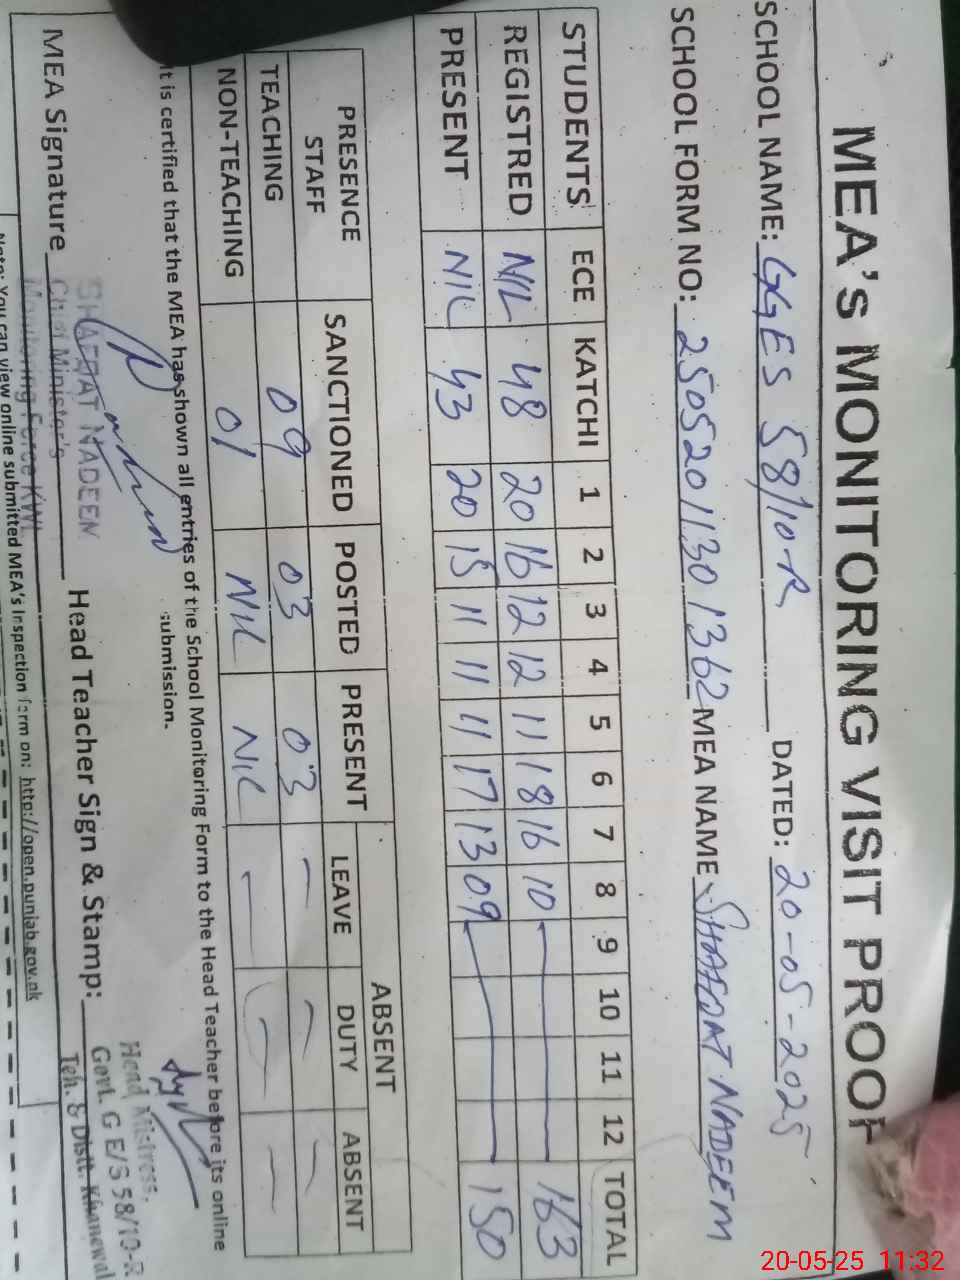 MEA'S MONITORING VISIT PROOF
SCHOOL NAME: GGES 58/10-R DATED: 20-05-2025
SCHOOL FORM NO: 25052011301362 MEA NAME SHAFQAT NADEEM
STUDENTS ECE KATCHI 1 2 3 4 5 6 7 8 9 10 11 12 TOTAL
REGISTRED NIL 48 20 16 12 12 11 18 16 10 163
PRESENT NIL 43 20 15 11 11 11 17 13 09 150
PRESENCE STAFF SANCTIONED POSTED PRESENT ABSENT
LEAVE DUTY ABSENT
TEACHING 09 03 03 — — —
NON-TEACHING 01 NIL NIL — — —
It is certified that the MEA has shown all entries of the School Monitoring Form to the Head Teacher before its online
submission.
MEA Signature Head Teacher Sign & Stamp:
SHAFQAT NADEEN
Chief Minister's
Monitoring Force KWL
Head Mistress,
Govt. G E/S 58/10-R
Teh. & Distt. Khanewal
Note: You can view online submitted MEA's Inspection form on: http://open.punjab.gov.pk
20-05-25 11:32